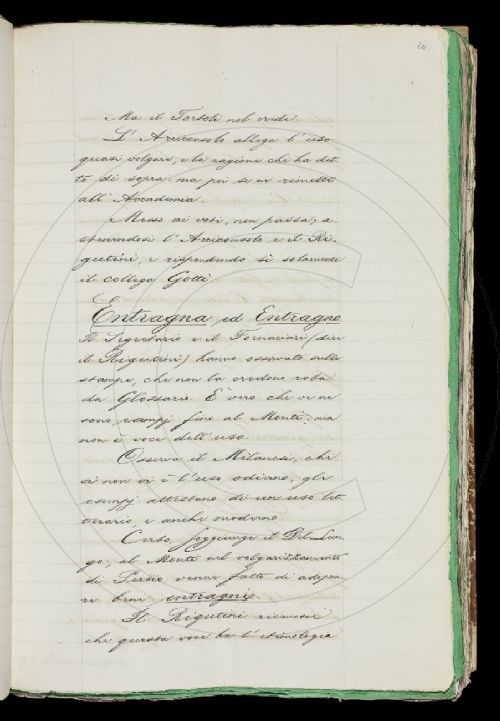 Ma il Tortoli nol crede.
L' Arciconsolo allega l' uso
quasi volgare, e la ragione che ha det-
to di sopra: ma poi se ne rimette
all' Accademia.
Messo ai voti, non passa; a
stenendosi l' Arciconsolo e il Ri-
gutini, e rispondendo sì solamente
il collega Gotti.
Entragna ed Entragno
Il Segretario e il Fornaciari (dice
il Rigutini) hanno osservato sulle
stampe, che non la credono roba
da Glossario. È vero che ve ne
sono esempj fino al Monti; ma
non è voce dell' uso.
Osserva il Milanesi, che
se non vi è l' uso odierno, gli
esempj attestano di un uso let-
terario, e anche moderno.
Certo, soggiunge il Del Lun-
go, al Monti nel volgarizzamento
di Persio venne fatto di adopra-
re bene entragni.
Il Rigutini riconosce
che questa voce ha l' etimologia